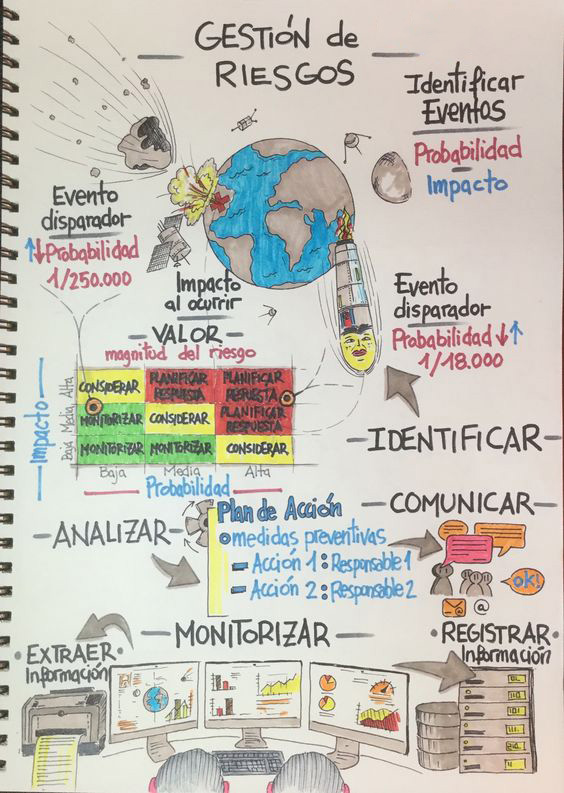 GESTIÓN de
RIESGOS
Identificar
Eventos
Probabilidad
Impacto
Evento
disparador
↑↓Probabilidad
1/250.000
Impacto
al ocurrir
Evento
disparador
Probabilidad ↓↑
1/18.000
-VALOR-
magnitud del riesgo
Impacto
Alta
Media
Baja
CONSIDERAR
PLANIFICAR RESPUESTA
PLANIFICAR RESPUESTA
MONITORIZAR
CONSIDERAR
PLANIFICAR RESPUESTA
MONITORIZAR
MONITORIZAR
CONSIDERAR
Baja Media Alta
Probabilidad
-IDENTIFICAR-
-ANALIZAR-
Plan de Acción
medidas preventivas
- Acción 1: Responsable 1
- Acción 2: Responsable 2
-COMUNICAR-
OK!
@
-MONITORIZAR-
•EXTRAER•
Información
•REGISTRAR•
Información